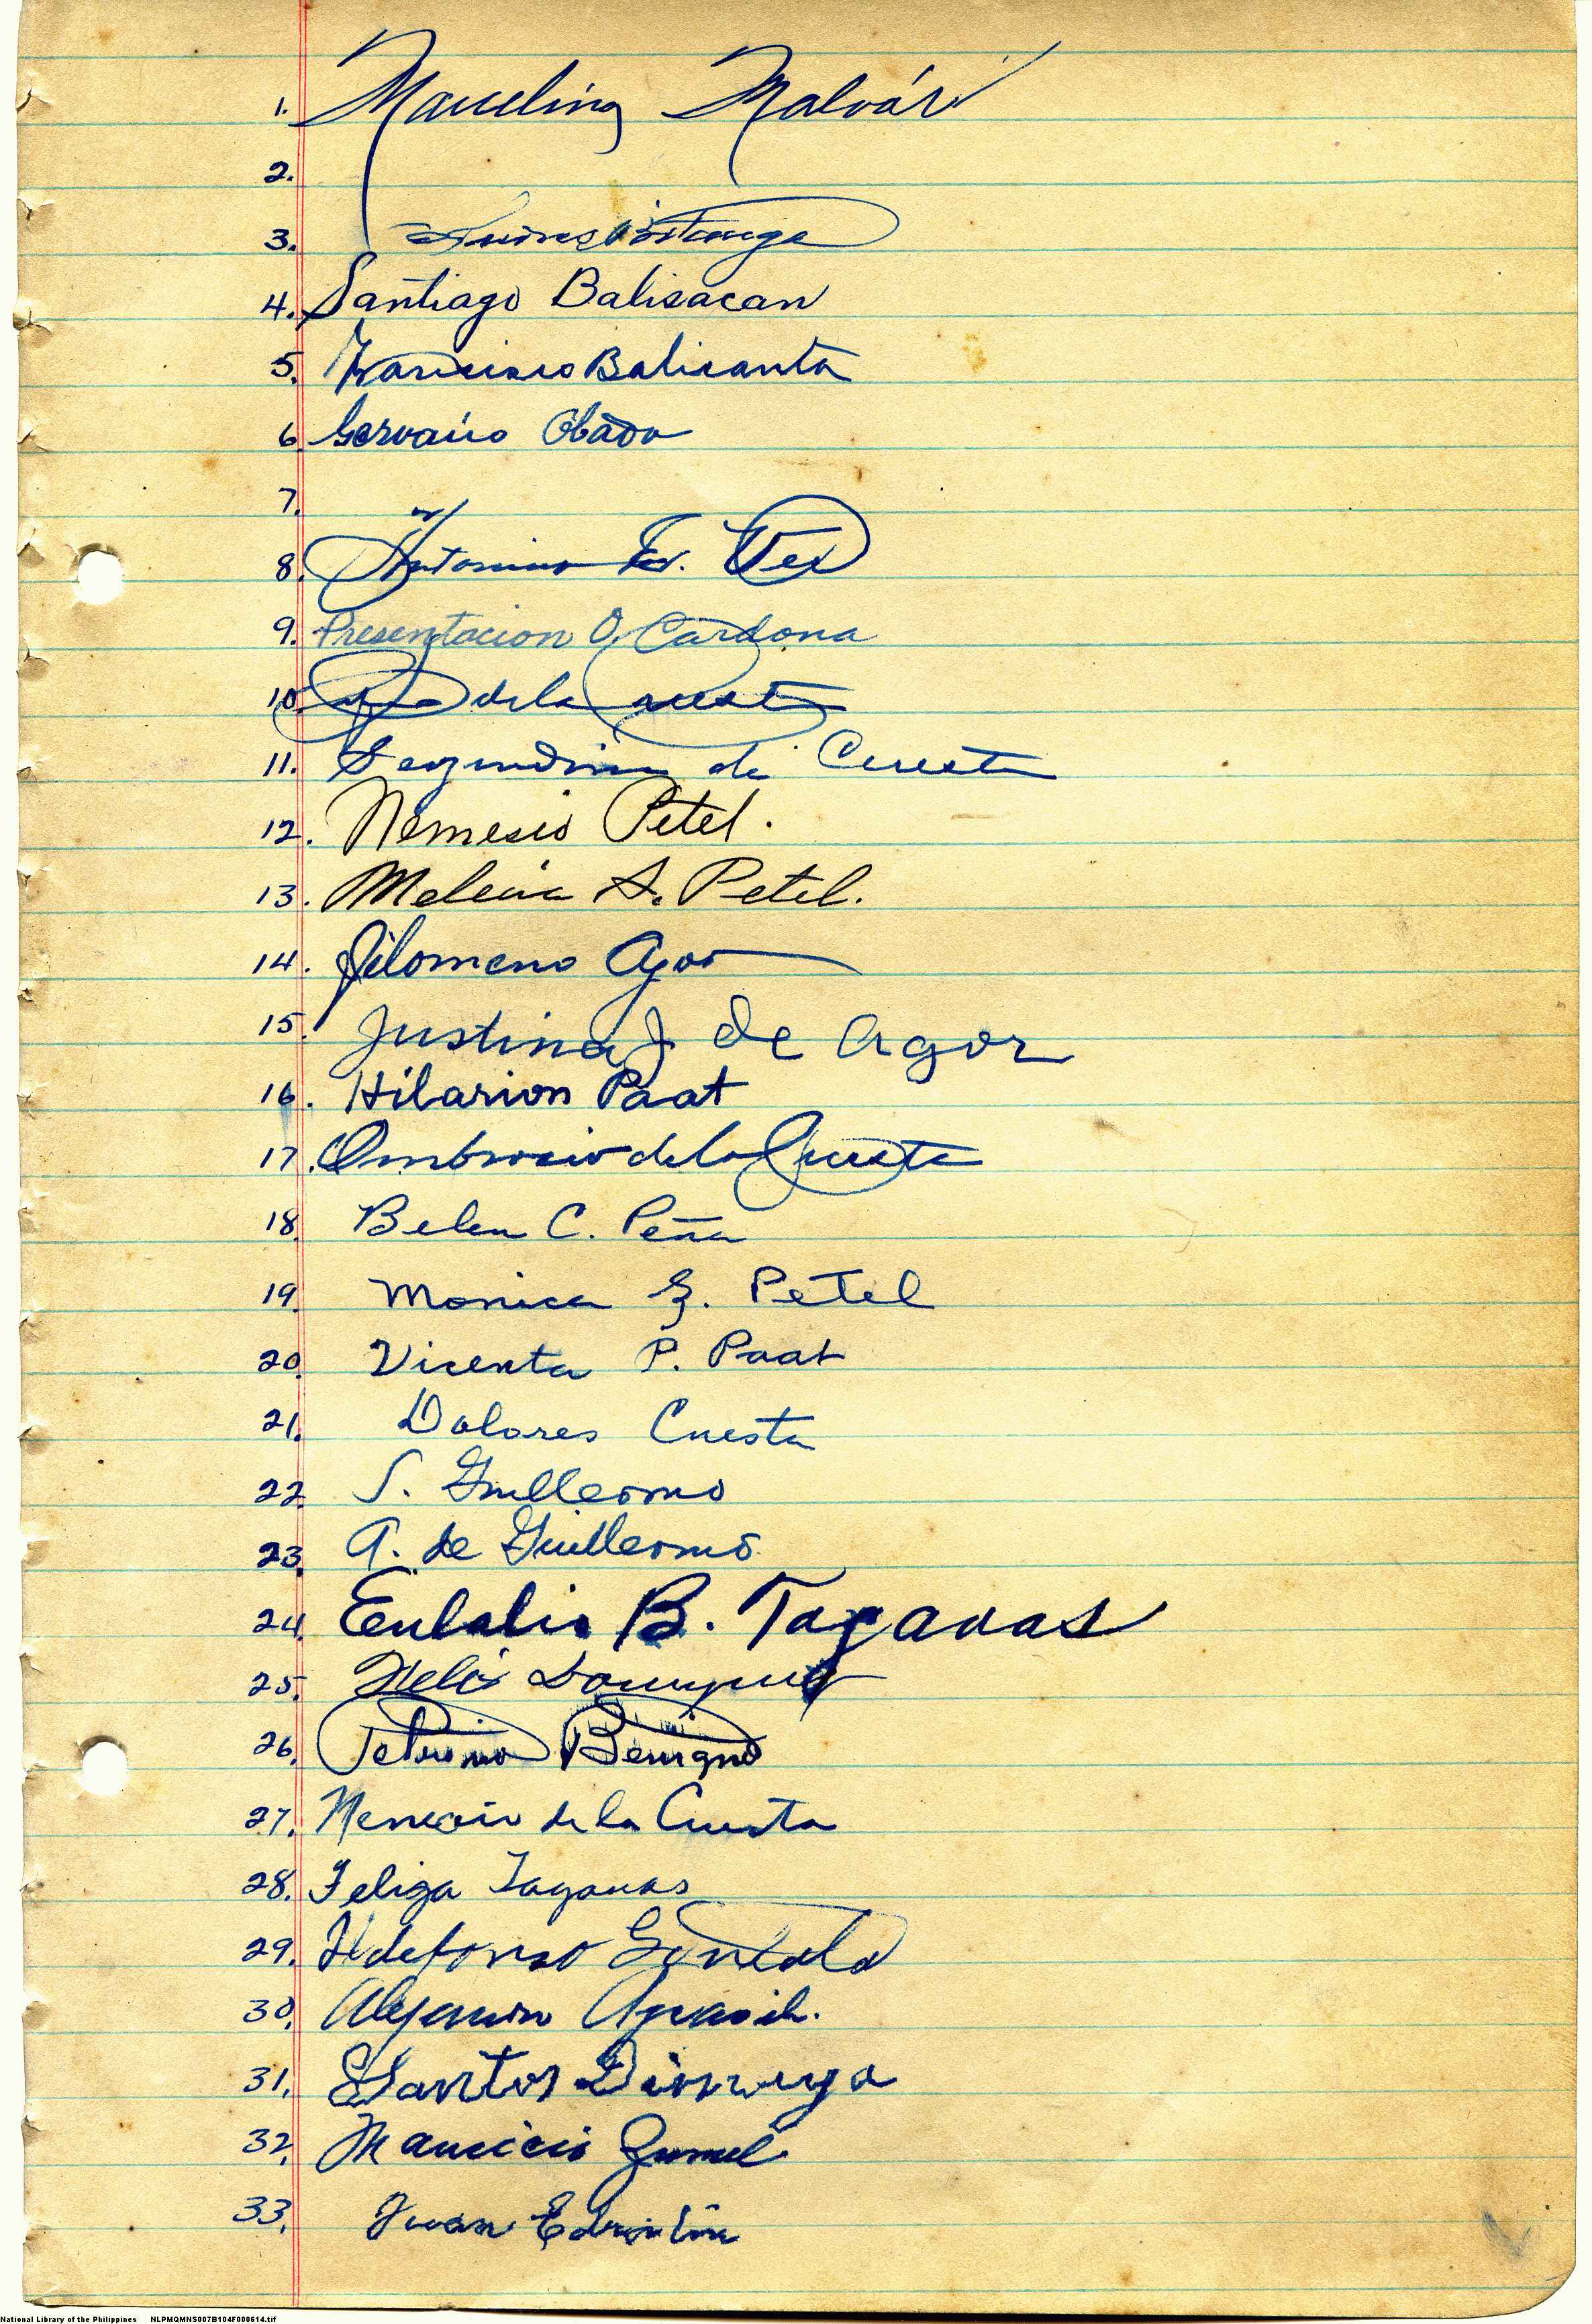 1. Marcelino Malvár
2.
3.
4. Santiago Balisacan
5. Francisco Balicanta
6. Gervacio Obado
7.
8. Antonino Fr.
9. Presentacion O. Cardona
10. de la Cuesta
11. Segundina de Cuesta
12. Nemesio Petel.
13. Melecia A. Petel.
14. Filomeno Agor
15. Justina J. de Agor
16. Hilarion Paat
17. Ambrocio de la Cuesta
18. Belen C. Peña
19. Monica G. Petel
20. Vicenta P. Paat
21. Dolores Cuesta
22. S. Guillermo
23. A. de Guillermo
24. Eulalio B. Tagavas
25. Felix Domingo
26. Benigno
27. de la Cuesta
28. Feliza
29. Ildefonso
30.
31. Santos
32. Mauricio
33. Juan
National Library of the Philippines NLPMQMNS007B104F000614.tif